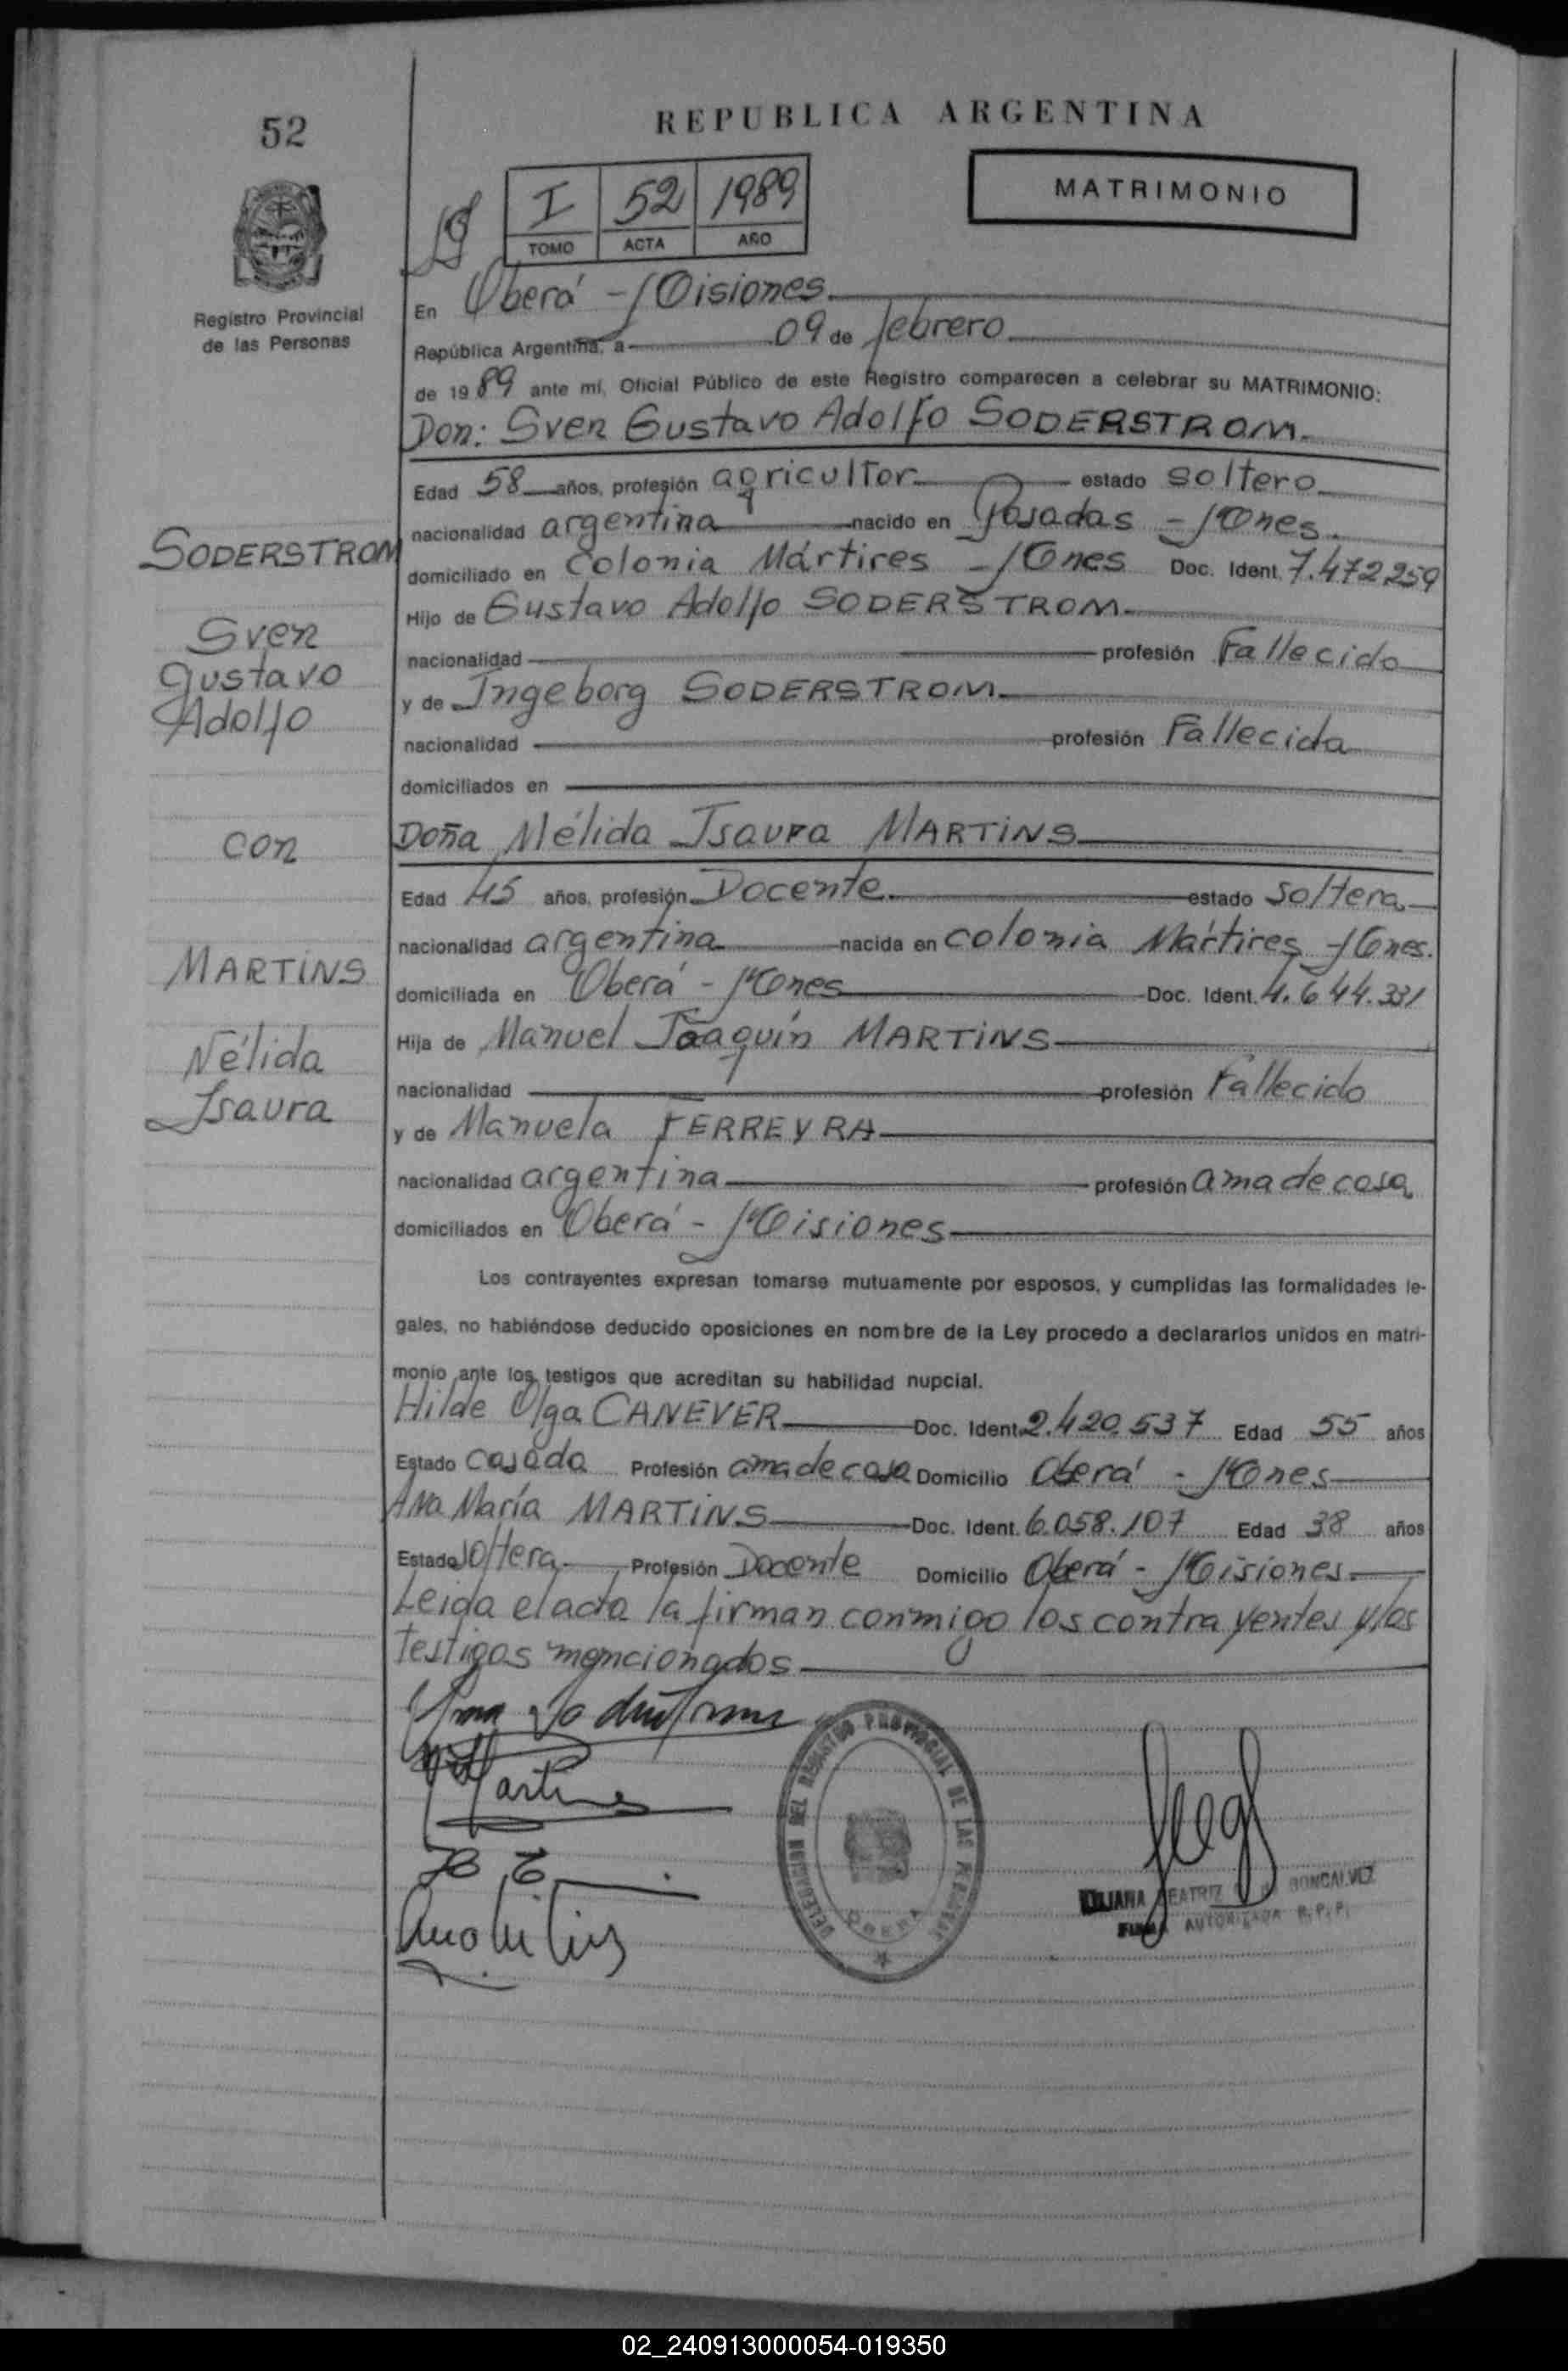 52
REPUBLICA ARGENTINA
MATRIMONIO
I 52 1989
TOMO ACTA AÑO
Registro Provincial
de las Personas
En Oberá - Misiones
República Argentina, a 09 de febrero
de 1989 ante mí, Oficial Público de este Registro comparecen a celebrar su MATRIMONIO:
Don: Sven Gustavo Adolfo SODERSTROM
Edad 58 años, profesión agricultor estado soltero
nacionalidad argentina nacido en Posadas - Mnes.
domiciliado en Colonia Mártires - Mnes Doc. Ident. 7.472259
Hijo de Gustavo Adolfo SODERSTROM
nacionalidad profesión Fallecido
y de Ingeborg SODERSTROM
nacionalidad profesión Fallecida
domiciliados en
Doña Nélida Isaura MARTINS
Edad 45 años, profesión Docente estado soltera
nacionalidad argentina nacida en colonia Mártires - Mnes.
domiciliada en Oberá - Mnes Doc. Ident. 4.644.331
Hija de Manuel Joaquín MARTINS
nacionalidad profesión Fallecido
y de Manuela FERREYRA
nacionalidad argentina profesión ama de casa
domiciliados en Oberá - Misiones
Los contrayentes expresan tomarse mutuamente por esposos, y cumplidas las formalidades le-
gales, no habiéndose deducido oposiciones en nombre de la Ley procedo a declararlos unidos en matri-
monio ante los testigos que acreditan su habilidad nupcial.
Hilde Olga CANEVER Doc. Ident. 2.420.537 Edad 55 años
Estado casada Profesión ama de casa Domicilio Oberá - Mnes
Ana María MARTINS Doc. Ident. 6.058.107 Edad 38 años
Estado soltera Profesión Docente Domicilio Oberá - Misiones
Leida el acta la firman conmigo los contrayentes y los
testigos mencionados
SODERSTROM
Sven
Gustavo
Adolfo
con
MARTINS
Nélida
Isaura
DELEGACION DEL REGISTRO PROVINCIAL DE LAS PERSONAS
OBERA
LILIANA BEATRIZ GONCALVEZ
FIRMA AUTORIZADA R.P.P.
02_240913000054-019350